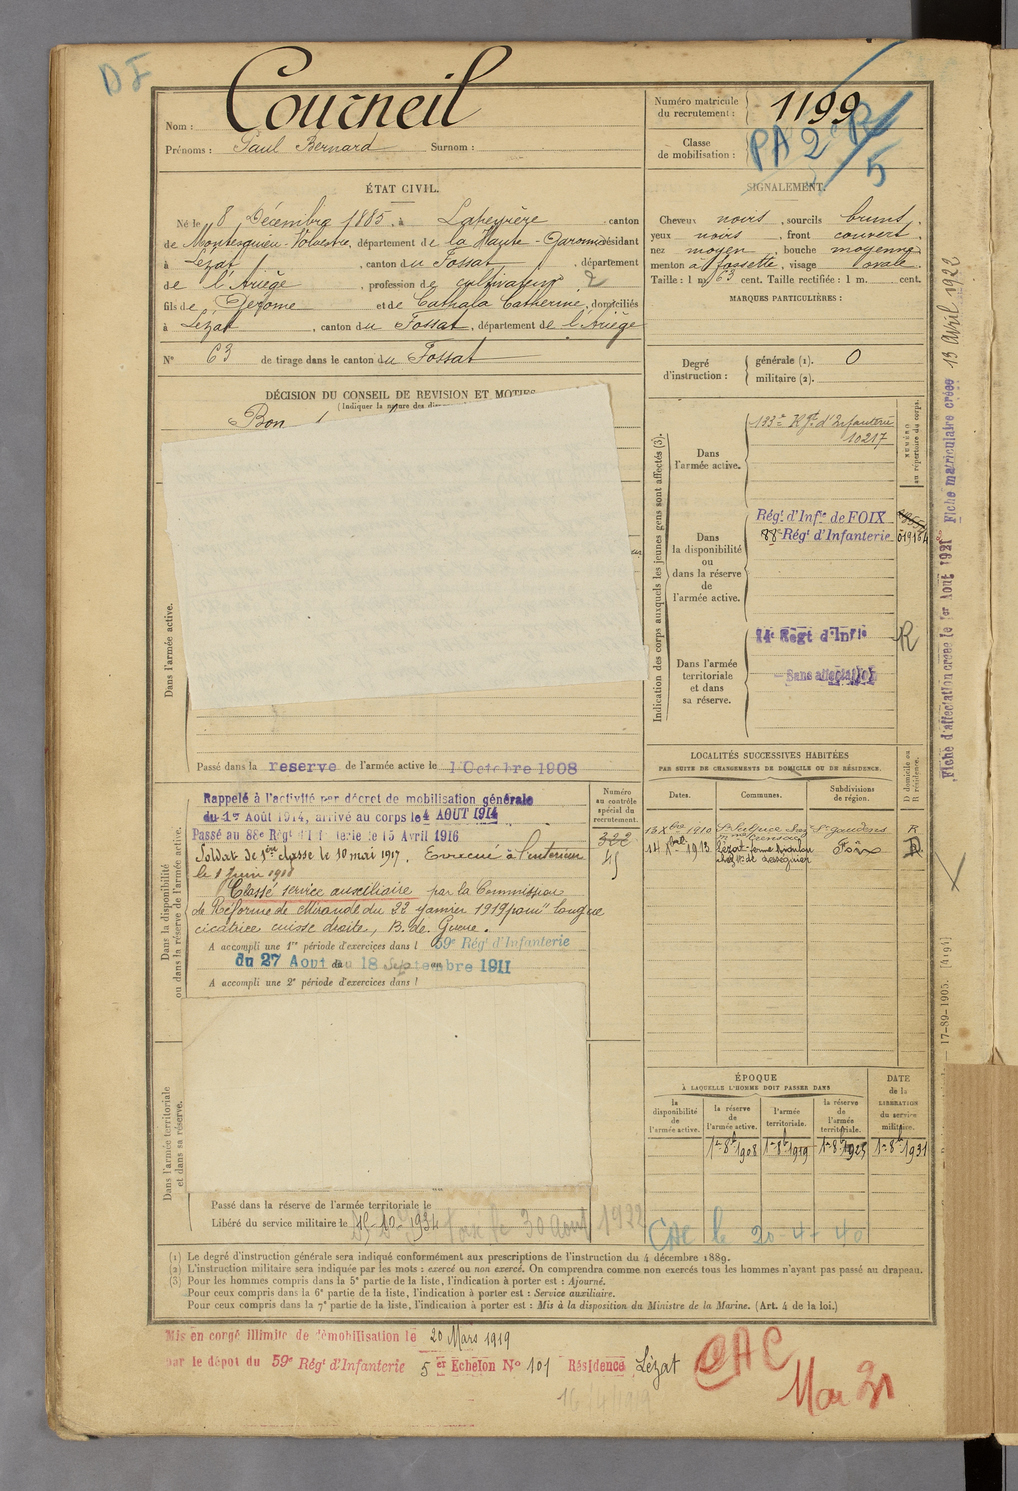 DF
Nom : Courneil
Prénoms : Paul Bernard Surnom :
Numéro matricule
du recrutement : 1199
Classe
de mobilisation :
PA 2e R/5
ÉTAT CIVIL.
Né le 8 Décembre 1885, à Lapeyrère, canton
de Montesquieu-Volvestre, département de la Haute-Garonne, résidant
à Lézat, canton du Fossat, département
de l'Ariège, profession de cultivateur 2
fils de Jérome et de Cathala Catherine, domiciliés
à Lézat, canton du Fossat, département de l'Ariège
N° 63 de tirage dans le canton du Fossat
SIGNALEMENT.
Cheveux noirs, sourcils bruns,
yeux noirs, front couvert,
nez moyen, bouche moyenne,
menton à fossette, visage ovale.
Taille : 1 m. 63 cent. Taille rectifiée : 1 m. cent.
MARQUES PARTICULIÈRES :
Degré
d'instruction :
générale (1). 0
militaire (2).
DÉCISION DU CONSEIL DE REVISION ET MOTIFS
(Indiquer la nature des
Bon
Dans l'armée active.
Passé dans la reserve de l'armée active le 1 Octobre 1908
Indication des corps auxquels les jeunes gens sont affectés (3).
NUMÉRO
au répertoire du corps.
Dans
l'armée active.
Rgt d'Infanterie
10217
Dans
la disponibilité
ou
dans la réserve
de
l'armée active.
Régt d'Infie de FOIX
88e Régt d'Infanterie
Dans l'armée
territoriale
et dans
sa réserve.
14e Régt d'Infie R
Sans affectation
Dans la disponibilité
ou dans la réserve de l'armée active.
Rappelé à l'activité par décret de mobilisation générale
du 1er Août 1914, arrivé au corps le 4 AOUT 1914
Passé au 88e Régt d'Infanterie le 15 Avril 1916
Soldat de 1ère classe le 10 mai 1917. Evacué à l'intérieur
le 1 Juin 1918
Classé service auxiliaire par la Commission
de Réforme de Mirande du 22 janvier 1919 pour "longue
cicatrice cuisse droite, B. de Guerre.
A accompli une 1re période d'exercices dans l 59e Régt d'Infanterie
du 27 Aout au 18 Septembre 1911
A accompli une 2e période d'exercices dans l
Numéro
au contrôle
spécial du
recrutement.
322
45
LOCALITÉS SUCCESSIVES HABITÉES
PAR SUITE DE CHANGEMENTS DE DOMICILE OU DE RÉSIDENCE.
Dates. Communes. Subdivisions
de région.
D domicile ou
R résidence.
13 Xbre 1910 St Sulpice chez St Gaudens R
1913 Lézat Foix
Dans l'armée territoriale
et dans sa réserve.
Passé dans la réserve de l'armée territoriale le
Libéré du service militaire le 15-10-1934
30 Aout 1922
ÉPOQUE
À LAQUELLE L'HOMME DOIT PASSER DANS
la
disponibilité
de
l'armée active.
la réserve
de
l'armée active.
l'armée
territoriale.
la réserve
de
l'armée
territoriale.
DATE
de la
LIBÉRATION
du service
militaire.
1er 8bre 1908 1er 8bre 1919 1er 8bre 1925 1er 8bre 1931
CAC le 20-4-40
(1) Le degré d'instruction générale sera indiqué conformément aux prescriptions de l'instruction du 4 décembre 1889.
(2) L'instruction militaire sera indiquée par les mots : exercé ou non exercé. On comprendra comme non exercés tous les hommes n'ayant pas passé au drapeau.
(3) Pour les hommes compris dans la 5e partie de la liste, l'indication à porter est : Ajourné.
Pour ceux compris dans la 6e partie de la liste, l'indication à porter est : Service auxiliaire.
Pour ceux compris dans la 7e partie de la liste, l'indication à porter est : Mis à la disposition du Ministre de la Marine. (Art. 4 de la loi.)
Mis en congé illimité de démobilisation le 20 Mars 1919
par le dépot du 59e Régt d'Infanterie 5 er Echelon No 101 Résidence Lézat
16/4/1919
CAC
Mai 21
Fiche d'affectation créée le 1er Aout 1921 Fiche matriculaire créée 13 Avril 1922
17-89-1905. [4194]